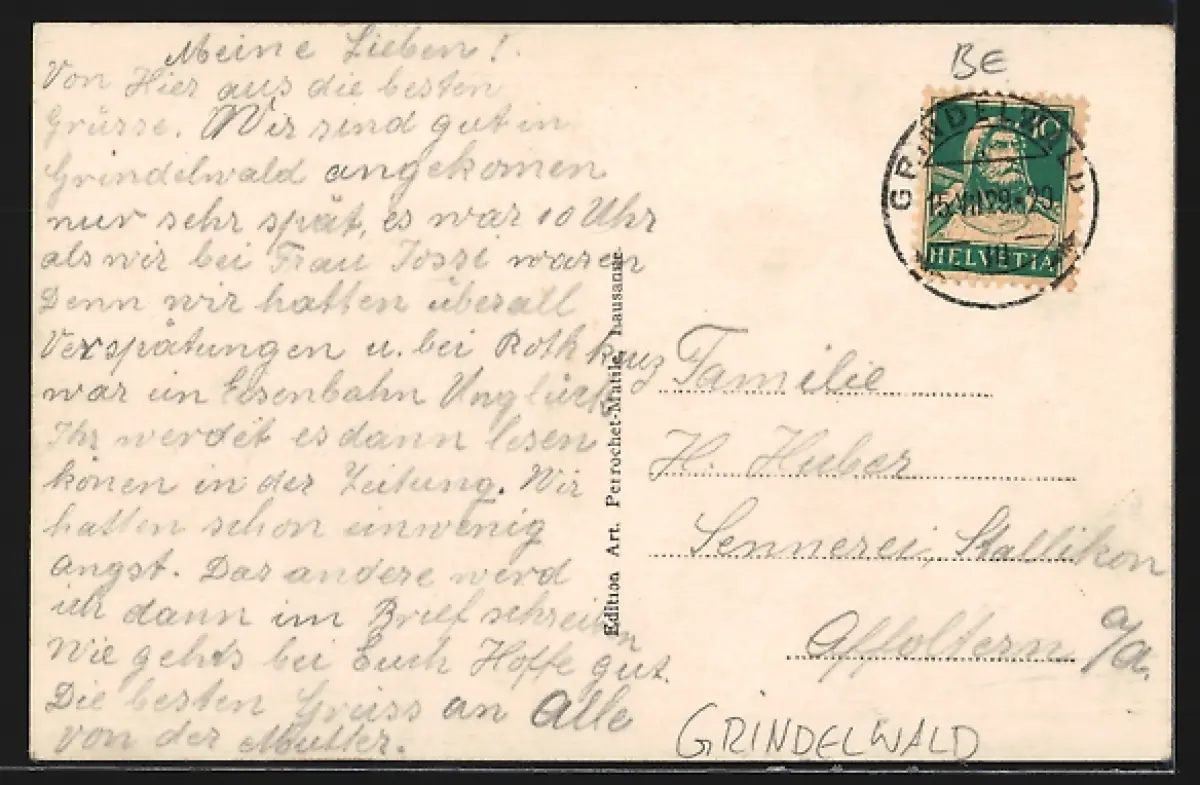 Meine Lieben!
Von Hier aus die besten
Grüsse. Wir sind gut in
Grindelwald angekomen
nur sehr spät, es war 10 Uhr
als wir bei Frau Jossi waren
Denn wir hatten überall
Verspätungen u. bei Rothkreuz
war ein Eisenbahn Unglück
Ihr werdet es dann lesen
könen in der Zeitung. Wir
hatten schon einwenig
angst. Das andere werd
ich dann im Brief schreiben
Wie gehts bei Euch Hoffe gut.
Die besten Grüss an Alle
von der Mutter.
Edition Art. Perrochet-Matile, Lausanne.
BE
GRINDELWALD
10
15.VII.29
HELVETIA
Familie
H. Huber
Sennerei, Stallikon
Affoltern a/A.
GRINDELWALD